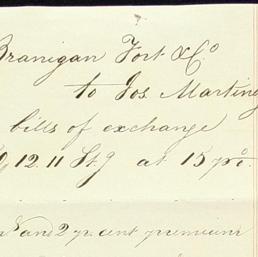 Branigan Fort & Co
to Jos. Martin
bills of exchange
12.11 Stg at 15 pr.
and 2 pr. cent premium